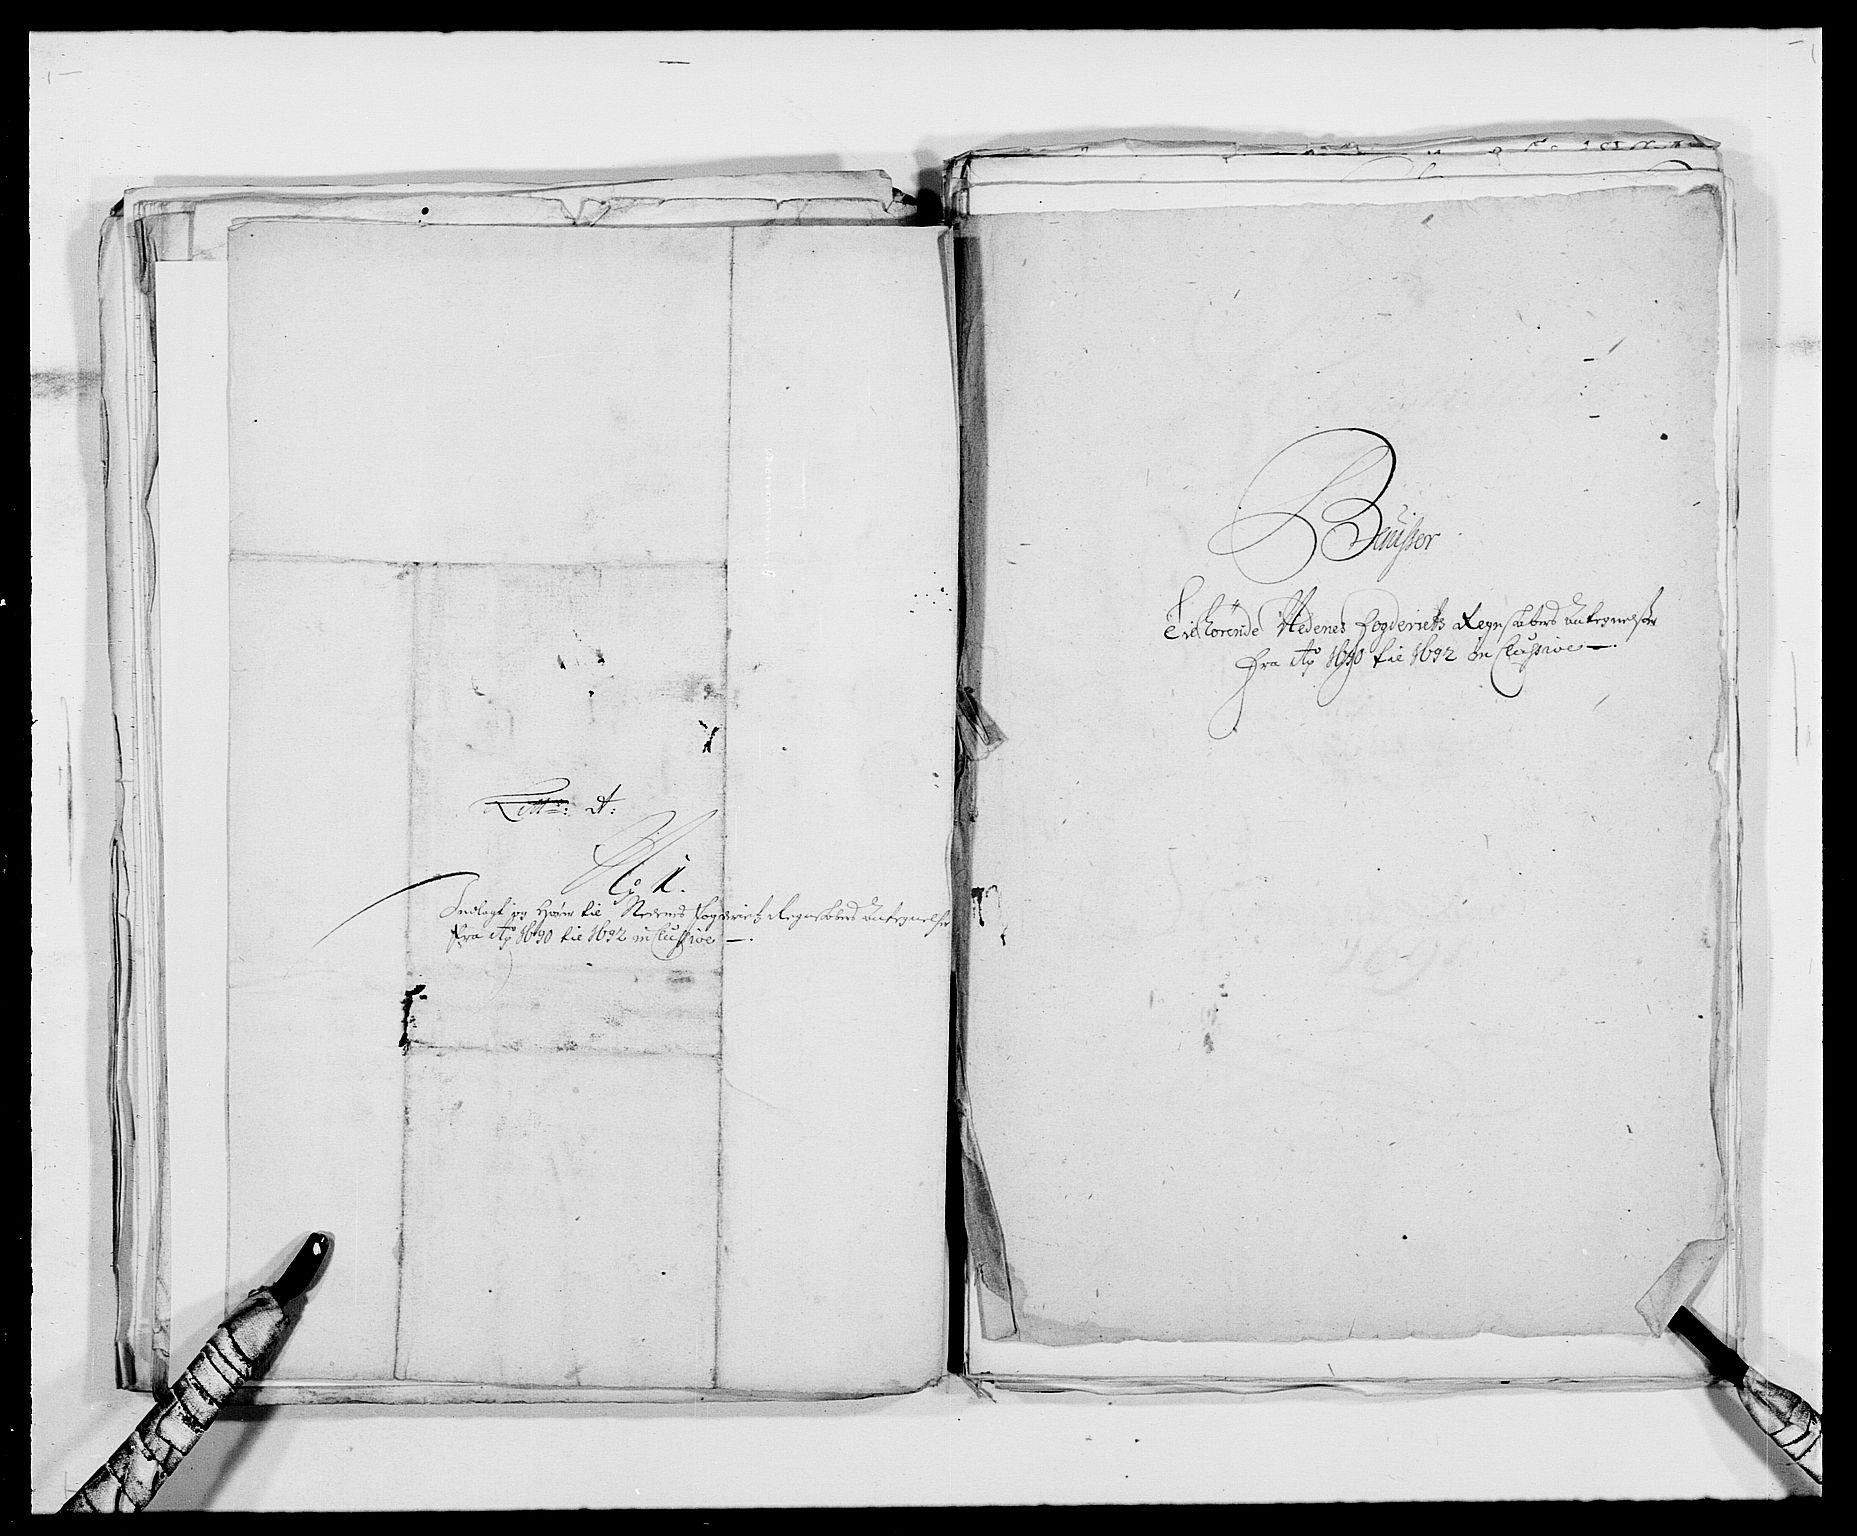 Litr: A:
No 1.
Indlagt og Hører til Nedenes Fogderies Regnskabers Antegnelser
fra Ao 1690 til 1692 inClussive —.
Bewisser
Tilhörende Nedenes Fogderiets Regnskabers Antegnelser
fra Ao 1690 til 1692 in Clussive —.